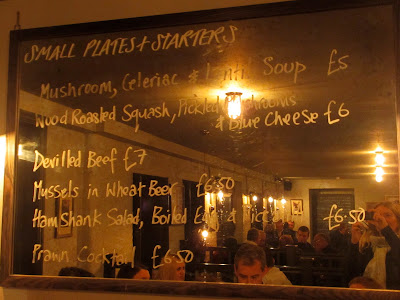 SMALL PLATES + STARTERS
Mushroom, Celeriac & Lentil Soup £5
Wood Roasted Squash, Pickled Mushrooms
& Blue Cheese £6
Devilled Beef £7
Mussels in Wheat Beer £6.50
Ham Shank Salad, Boiled Egg & £6.50
Prawn Cocktail £6.50